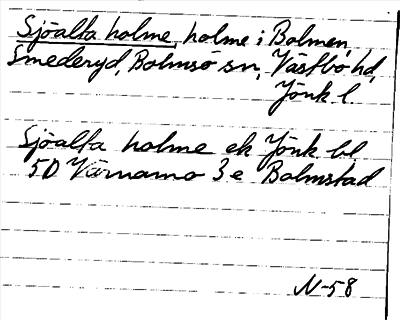 Sjöalta holme, holme i Bolmen,
Smederyd, Bolmsö sn, Västbo hd,
Jönk l.
Sjöalta holme ek Jönk bl
5D Värnamo 3e Bolmstad
N-58